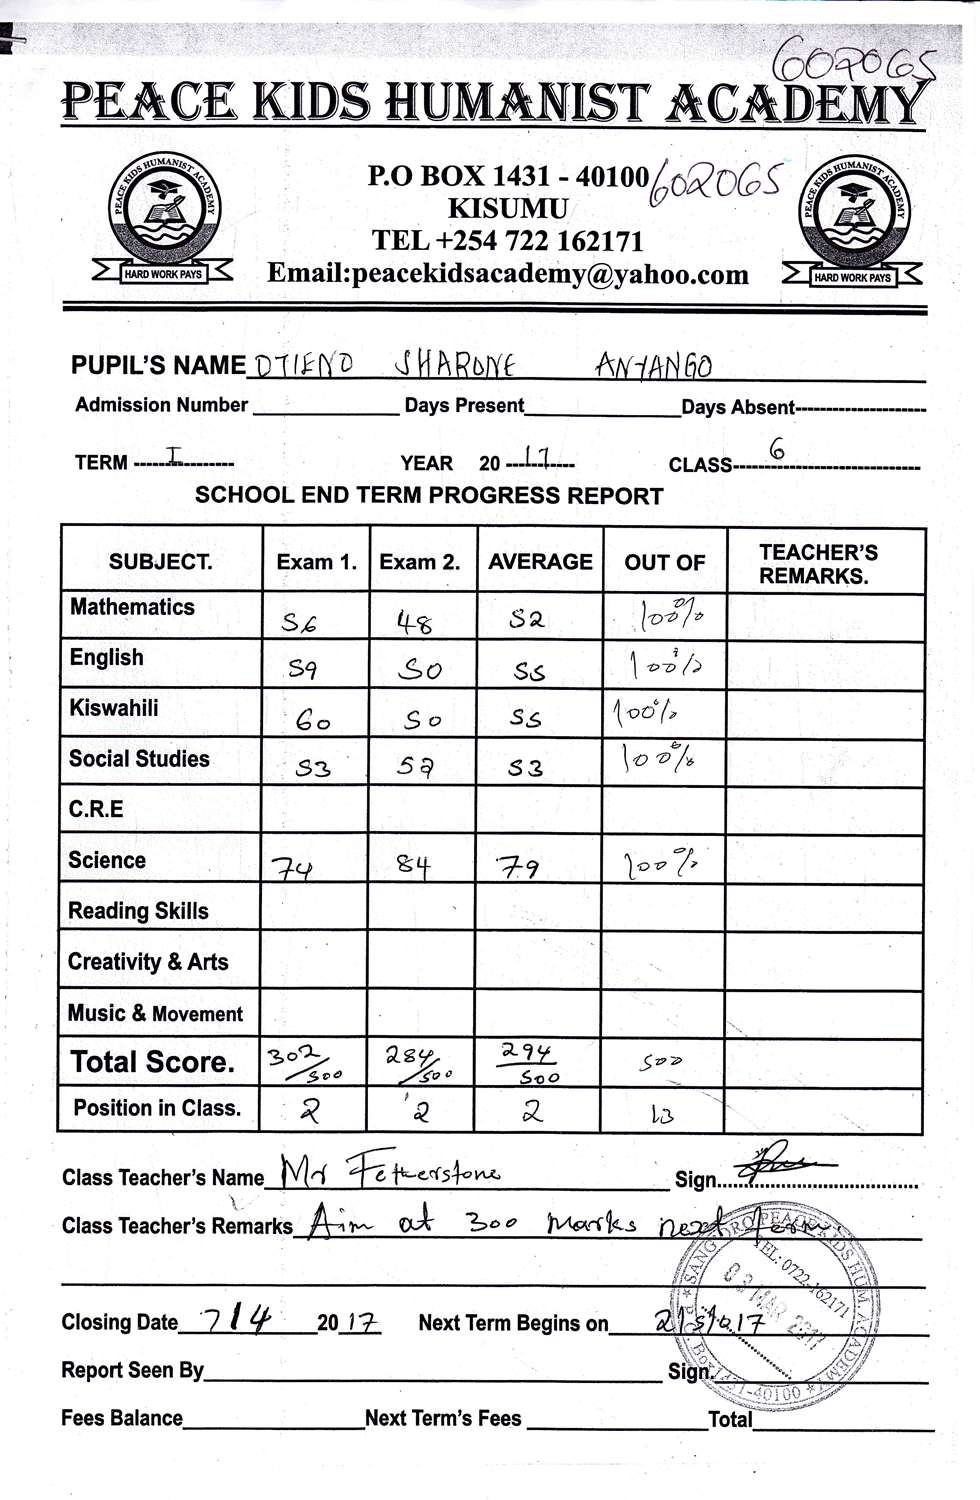 602065
PEACE KIDS HUMANIST ACADEMY
PEACE KIDS HUMANIST ACADEMY
HARD WORK PAYS
P.O BOX 1431 - 40100 602065
KISUMU
TEL +254 722 162171
Email:peacekidsacademy@yahoo.com
PEACE KIDS HUMANIST ACADEMY
HARD WORK PAYS
PUPIL'S NAME OTIENO SHARONE ANYANGO
Admission Number Days Present Days Absent
TERM I YEAR 20 17 CLASS 6
SCHOOL END TERM PROGRESS REPORT
SUBJECT. Exam 1. Exam 2. AVERAGE OUT OF TEACHER'S REMARKS.
Mathematics 56 48 52 100%
English 59 50 55 100%
Kiswahili 60 50 55 100%
Social Studies 53 52 53 100%
C.R.E
Science 74 84 79 100%
Reading Skills
Creativity & Arts
Music & Movement
Total Score. 302/500 284/500 294/500 500
Position in Class. 2 2 2 13
Class Teacher's Name Mr Fetherstone Sign
Class Teacher's Remarks Aim at 300 marks next term
Closing Date 7/4 20 17 Next Term Begins on 2/5/2017
Report Seen By Sign.
Fees Balance Next Term's Fees Total
PEACE KIDS HUM. ACADEMY
TEL: 0722-162171
MAR 2017
P.O. Box 1431-40100